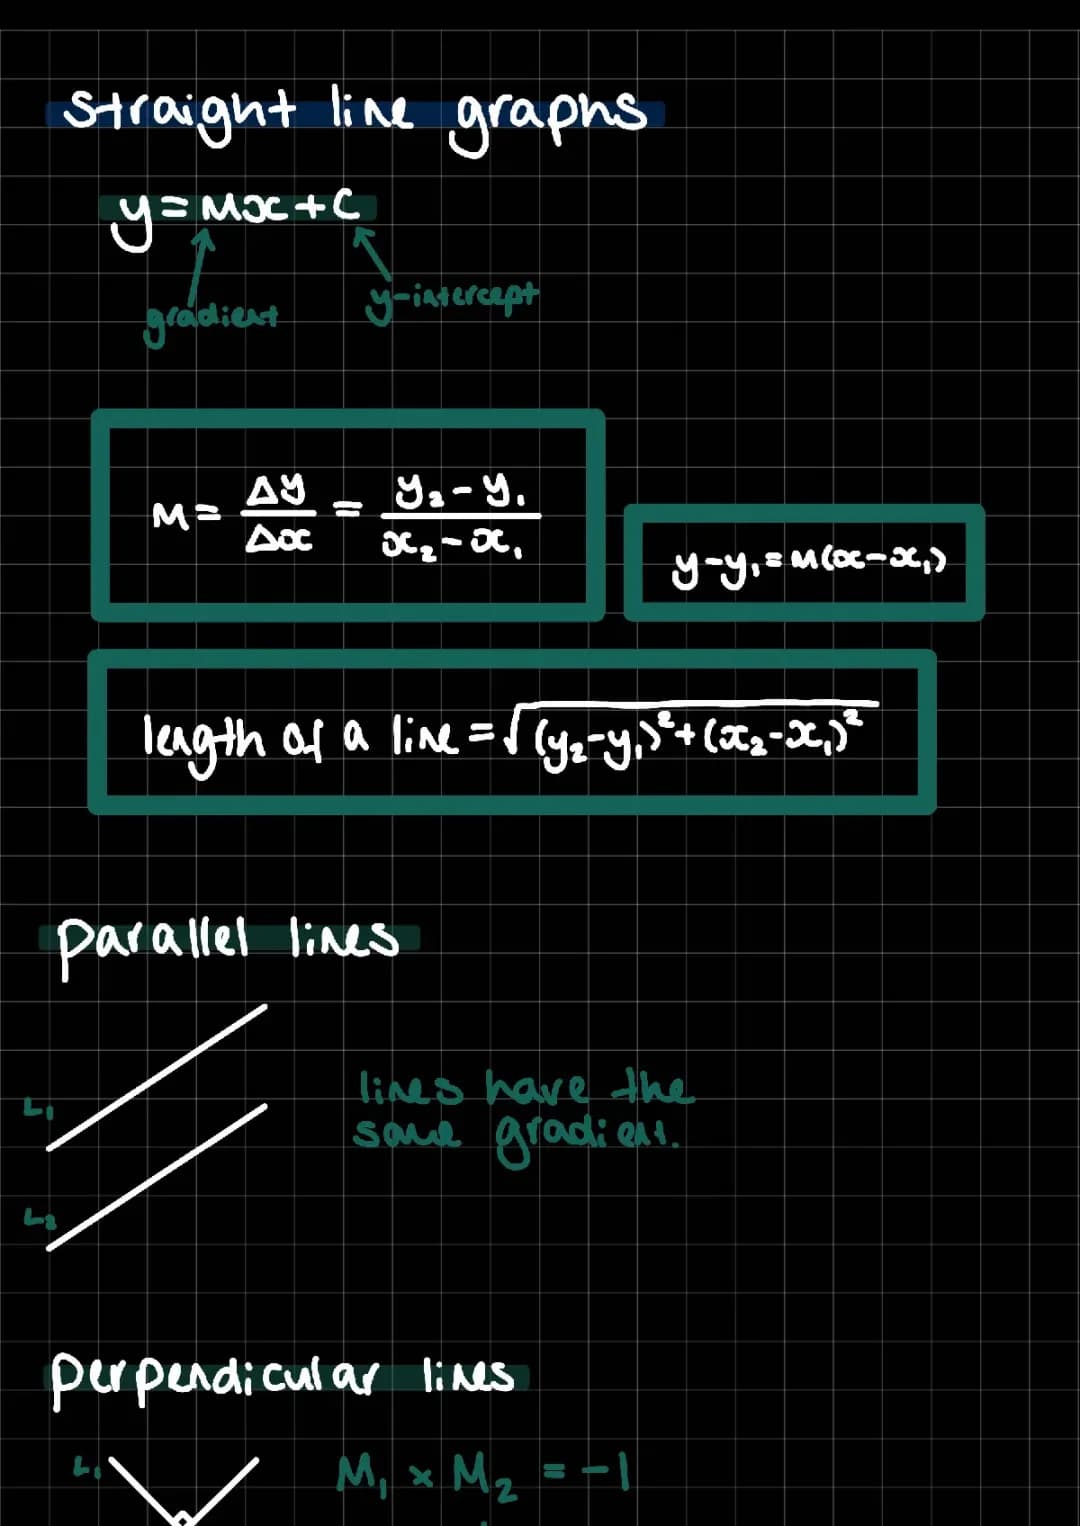 straight line graphs
y=mx+c
gradient
y-intercept
m = Δy/Δx = y₂-y₁/x₂-x₁
y-y₁=m(x-x₁)
length of a line=√(y₂-y₁)²+(x₂-x₁)²
parallel lines
L₁
lines have the
same gradient.
L₂
perpendicular lines
L₁
M₁ × M₂ = -1